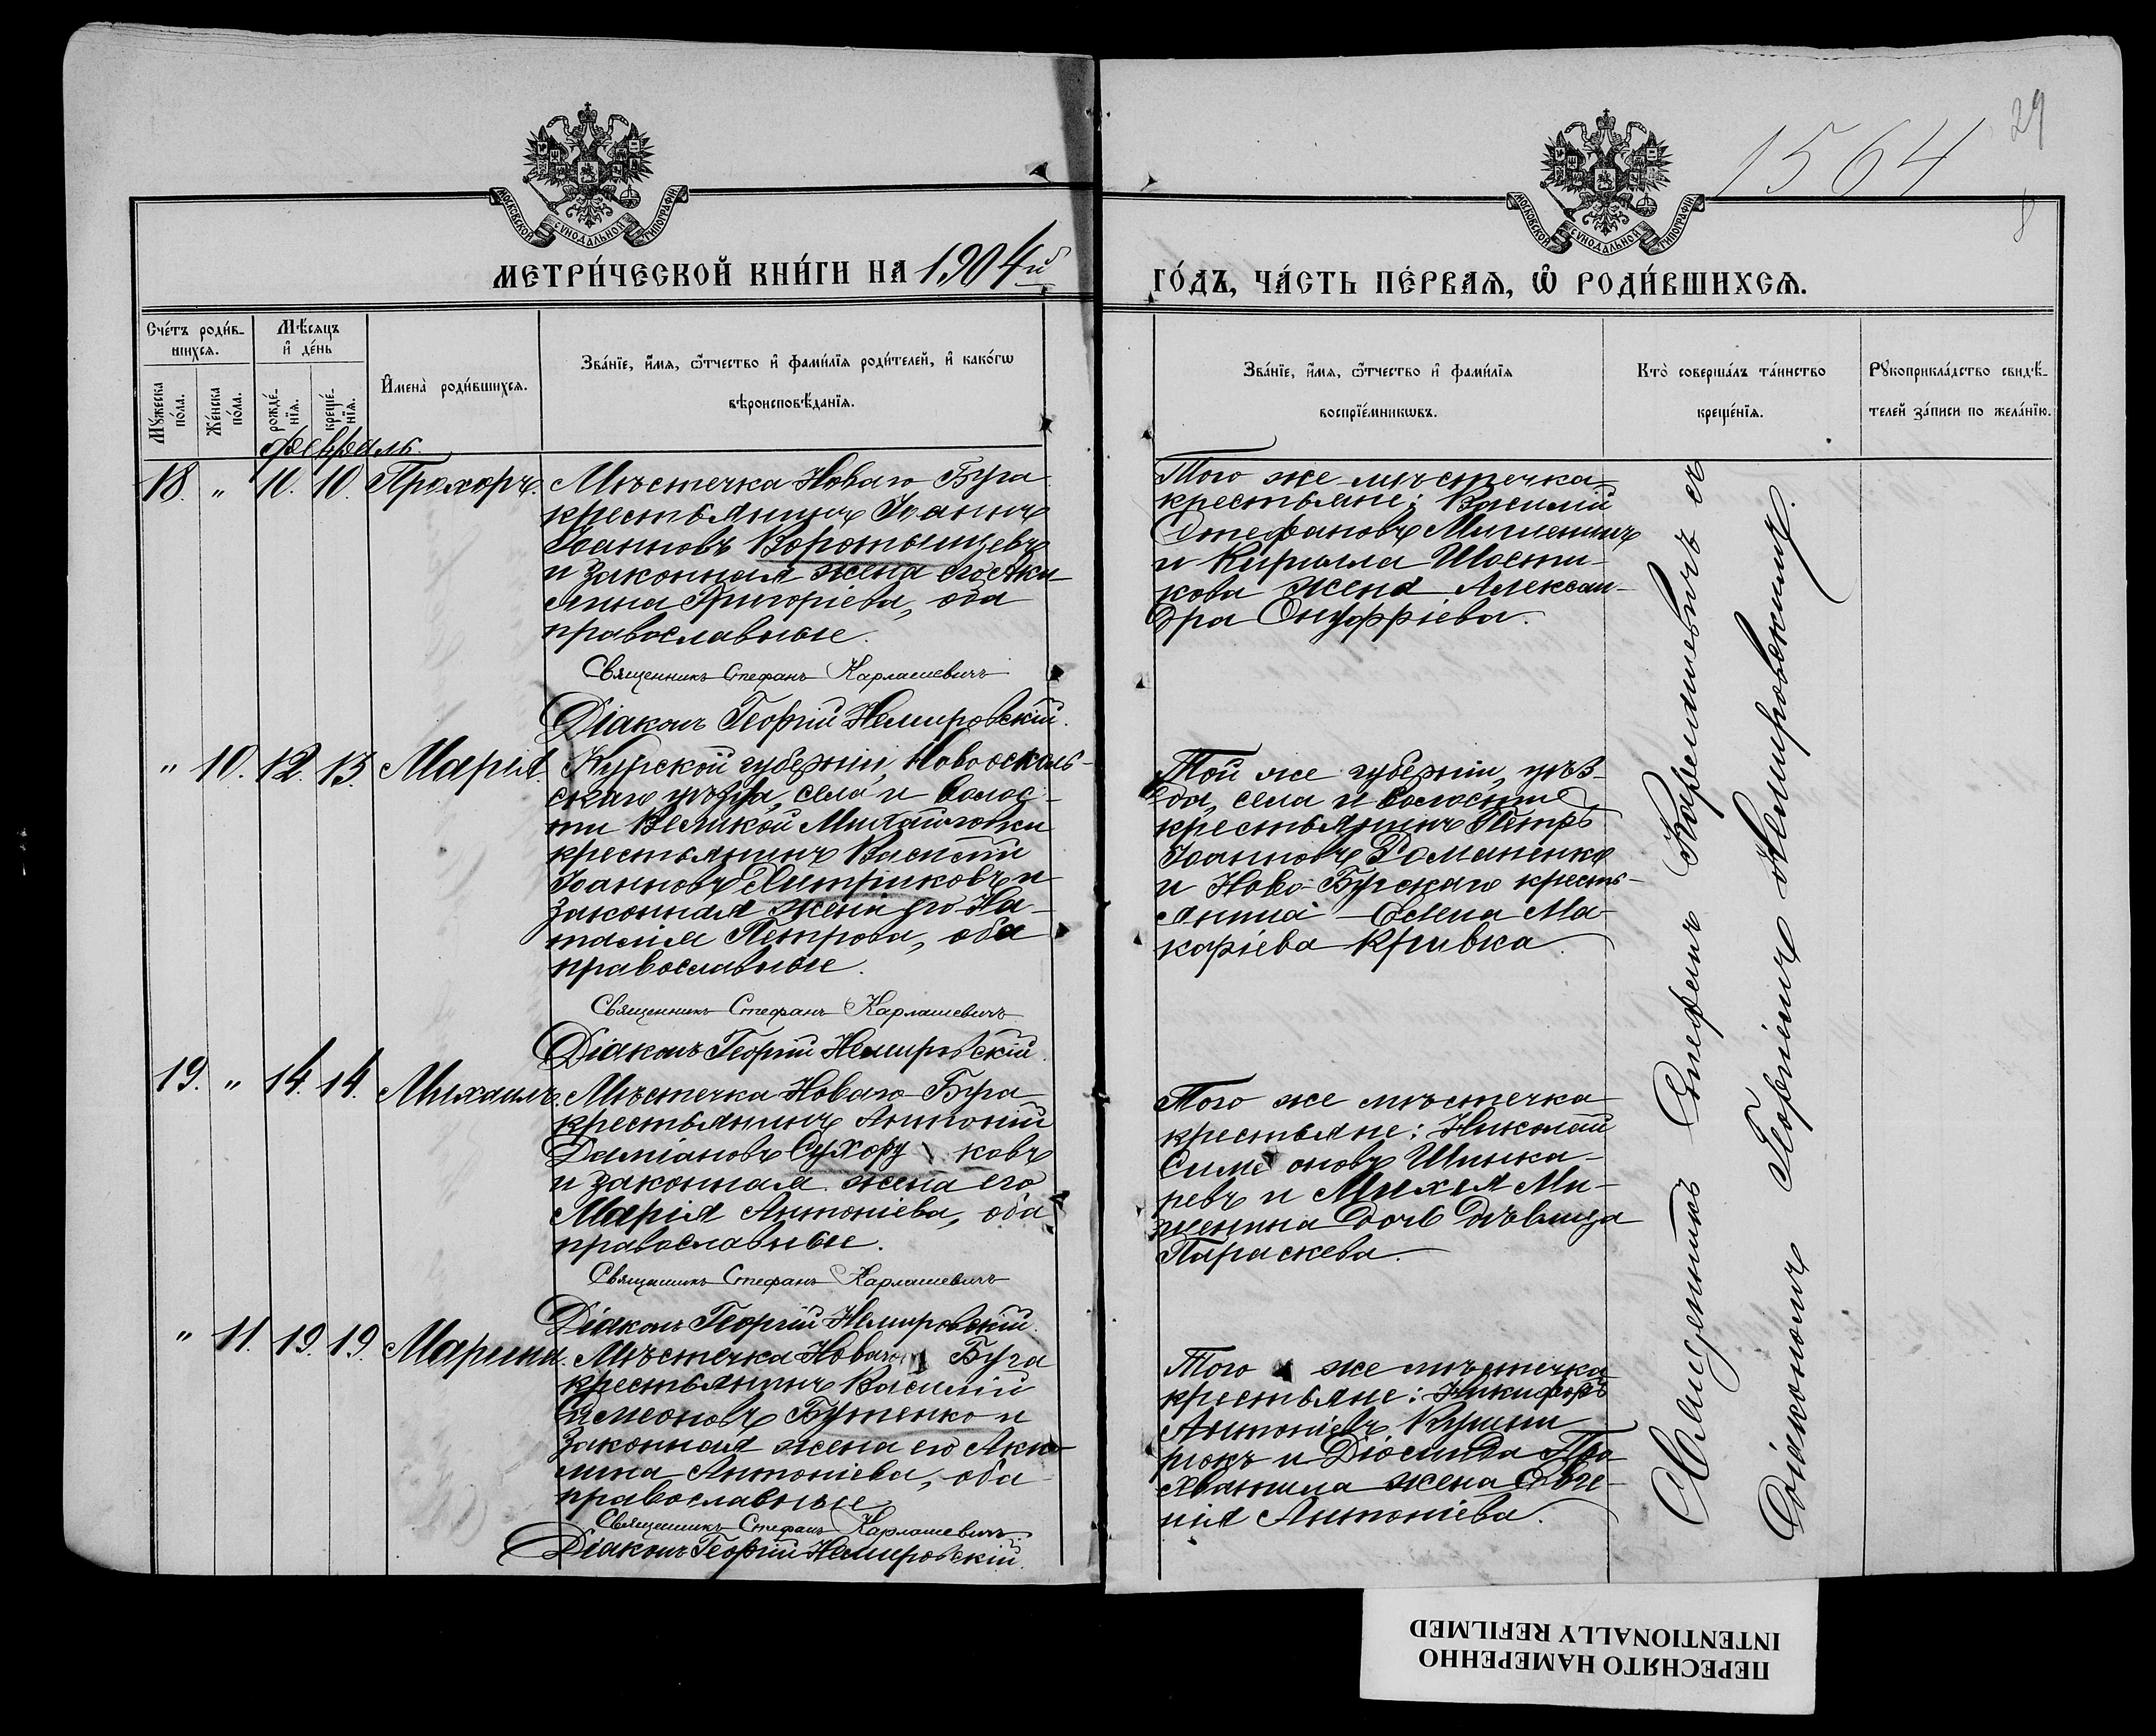 1564
29
8
МОСКОВСКОЙ СѴНОДАЛЬНОЙ ТИПОГРАФІИ
МОСКОВСКОЙ СѴНОДАЛЬНОЙ ТИПОГРАФІИ
МЕТРИ́ЧЕСКОЙ КНИ́ГИ НА 1904й
ГО́ДЪ, ЧА́СТЬ ПЕ́РВАѦ, Ѽ РОДИ́ВШИХСѦ.
Сче́тъ роди́в-
шихсѧ.
Мѣ́сѧцъ
и҆ де́нь
Мꙋ́жеска
по́ла.
Же́нска
по́ла.
рожде́-
нїѧ.
креще́-
нїѧ.
И҆мена̀ роди́вшихсѧ.
Зва́нїе, и҆́мѧ, ѻ҆́тчество и҆ фами́лїѧ роди́телей, и҆ како́гѡ
вѣроисповѣ́данїѧ.
Зва́нїе, и҆́мѧ, ѻ҆́тчество и҆ фами́лїѧ
воспрїе́мникѡвъ.
Кто̀ соверша́лъ та́инство
креще́нїѧ.
Рꙋкоприкла́дство свидѣ́-
телей за́писи по жела́нїю.
Февраль.
18. " 10. 10. Прохоръ.
Мѣстечка Новаго Буга
крестьянинъ Іоаннъ
Іоанновъ Воротынцевъ
и законная жена его Аки-
лина Григоріева, оба
православные.
Священникъ Стефанъ Карлашевичъ
Діаконъ Георгій Немировскій.
Того же мѣстечка
крестьяне: Василій
Стефановъ
и Кирилла Шости-
кова жена Алексан-
дра Онуфріева.
" 10. 12. 13. Марія.
Курской губерніи, Новооскль-
скаго уѣзда, села и волос-
ти Великой Михайловки
крестьянинъ Василій
Іоанновъ и
законная жена его На-
талія Петрова, оба
православные.
Священникъ Стефанъ Карлашевичъ
Діаконъ Георгій Немировскій.
Той же губерніи, уѣз-
да, села и волости
крестьянинъ Петръ
Іоанновъ Романенко
и Ново-Бугскаго кресть-
янина Елена Ма-
каріева Кривка.
19. " 14. 14. Михаилъ.
Мѣстечка Новаго Буга
крестьянинъ Антоній
Даміановъ Сухору ковъ
и законная жена его
Марія Антоніева, оба
православные.
Священникъ Стефанъ Карлашевичъ
Діаконъ Георгій Немировскій.
Того же мѣстечка
крестьяне: Николай
Симе оновъ Шинка-
ревъ и Михея Ми-
женина дочь дѣвица
Параскева.
" 11. 19. 19. Марина.
Мѣстечка Новаго Буга
крестьянинъ Василій
Симеоновъ Бутенко и
законная жена его Аки-
лина Антоніева, оба
православные.
Священникъ Стефанъ Карлашевичъ
Діаконъ Георгій Немировскій.
Того же мѣстечка
крестьяне: Никифоръ
Антоніевъ
и жена Евге-
нія Антоніева.
Священникъ Стефанъ Карлашевичъ съ
діакономъ Георгіемъ Немировскимъ.
ПЕРЕСНЯТО НАМЕРЕННО
INTENTIONALLY REFILMED